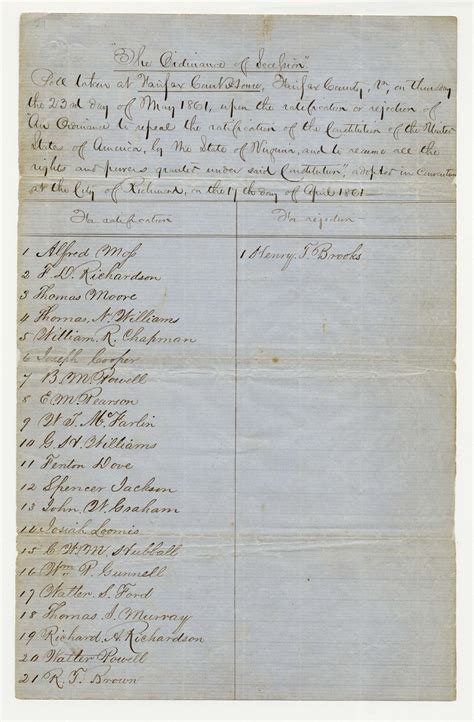 "The Ordinance of Secession"
Poll taken at Fairfax Court House, Fairfax County, Va, on Thursday
the 23rd day of May 1861, upon the ratification or rejection of
"An Ordinance to repeal the ratification of the Constitution of the United
States of America, by the State of Virginia, and to resume all the
rights and powers granted under said Constitution", adopted in Convention
at the City of Richmond, on the 17th day of April 1861
For ratification
For rejection
1 Alfred Moss
1 Henry T. Brooks
2 F. D. Richardson
3 Thomas Moore
4 Thomas N. Williams
5 William R. Chapman
6 Joseph Cooper
7 B. M. Powell
8 E. M. Pearson
9 W. T. McFarlin
10 G. H. Williams
11 Fenton Dove
12 Spencer Jackson
13 John W. Graham
14 Josiah Loomis
15 E. W. M. Hubball
16 Wm P. Gunnell
17 Walter S. Ford
18 Thomas J. Murray
19 Richard A. Richardson
20 Walter Powell
21 R. T. Brown